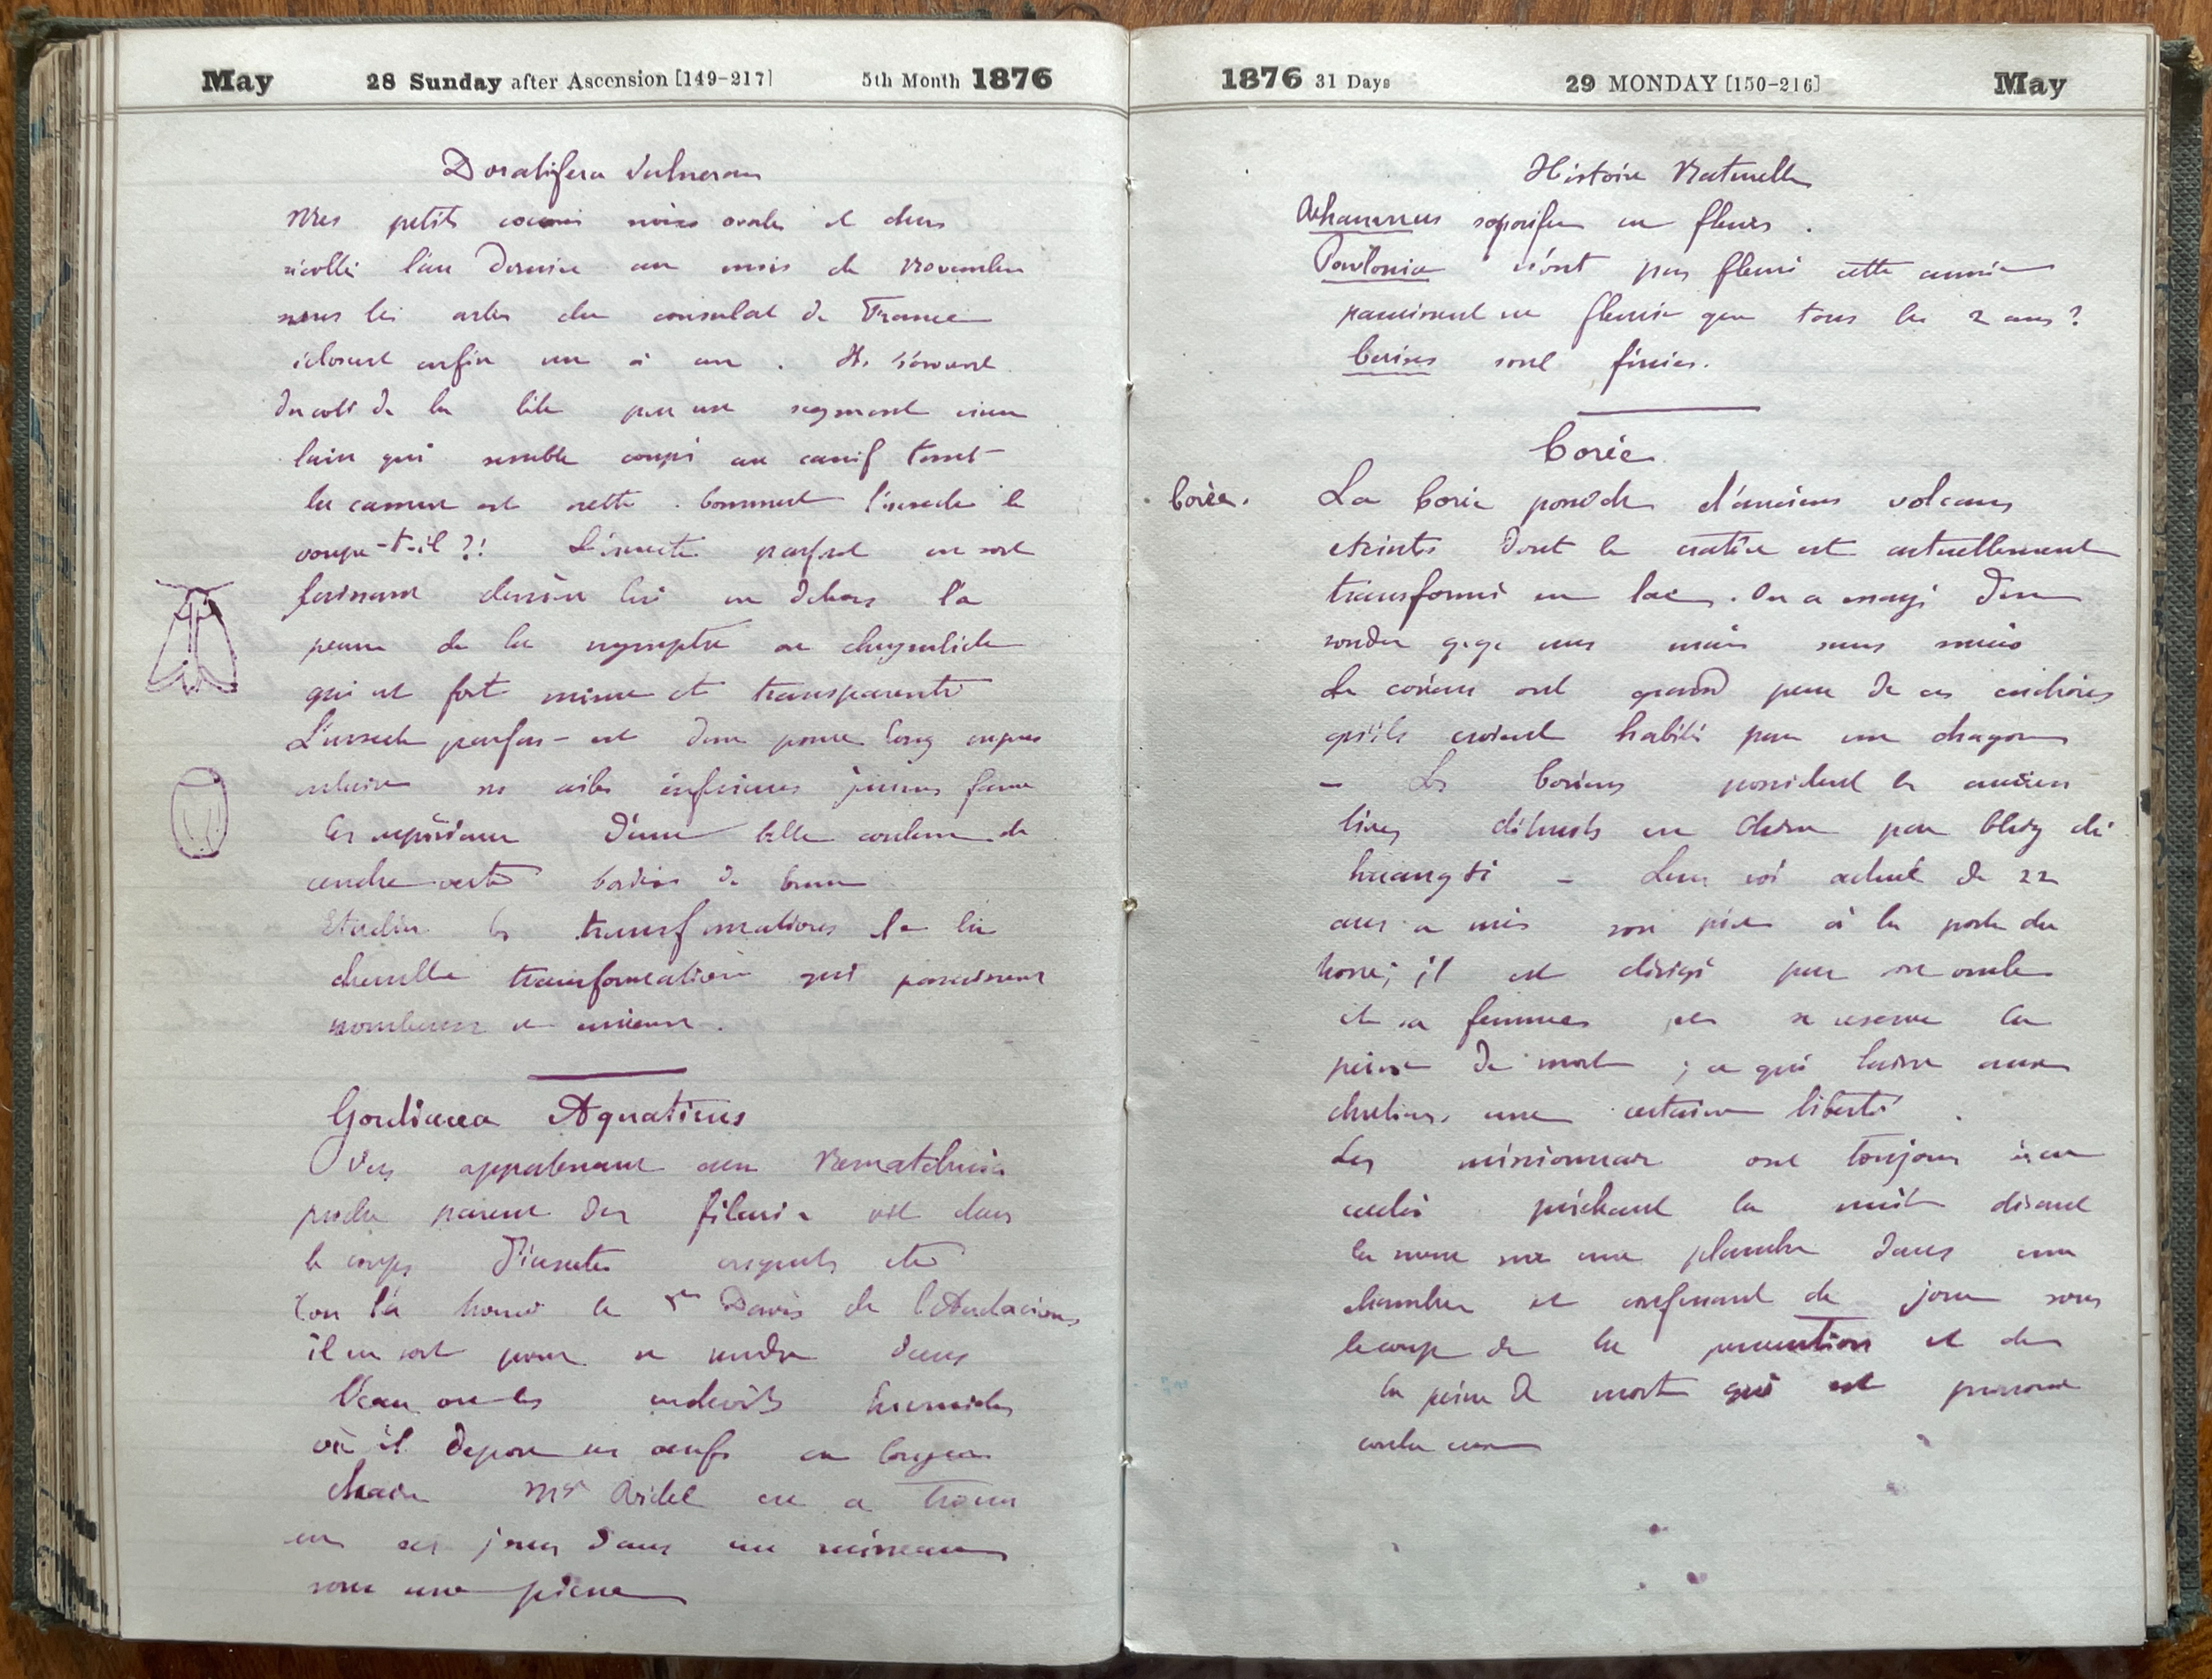 May 28 Sunday after Ascension [149-217] 5th Month 1876
Doratifera Vulnerans
Mes petits cocons noirs ovales et durs
récoltés l'an dernier au mois de Novembre
sous les arbres du consulat de France
éclosent enfin un à un. Ils s'ouvrent
du coté de la tête par un segment circu
laire qui semble coupé au canif tant
la cassure est nette. Comment l'insecte le
coupe-t-il ?! L'insecte parfait en sort
laissant derrière lui en dehors la
peau de la nymphe ou chrysalide
qui est fort mince et transparente
L'insecte parfait est d'un pouce long
ses ailes inférieures jaunes
les supérieures d'une belle couleur de
cendre verte bordées de brun
Etudier les transformations de la
chenille transformations qui paraissent
nombreuses et curieuses.
Gordiacea Aquaticus
Vers appartenant aux Nematelmia
proche parent des filaria vit dans
le corps d'insectes etc
l'on l'a trouvé le Dr Davis de l'Audacious
il en sort pour se rendre dans
l'eau ou les endroits humides
où il depose ses oeufs en longues
chaine Mr Ridel en a trouvé
un ces jours dans un ruisseau
sous une pierre
1876 31 Days 29 MONDAY [150-216] May
Histoire Naturelle
Rhamnus soporifer en fleurs.
Paulonia n'ont pas fleuri cette année
paraissent ne fleurir que tous les 2 ans?
Cerises sont finies.
Corée
Corée.
La Corée possède d'anciens volcans
éteints dont le cratère est actuellement
transformé en lac. On a essayé d'en
sonder qq. uns mais sans succès
Les coréens ont grand peur de ces endroits
qu'ils croient habités par un dragon
- Les Coréens possèdent les anciens
livres détruits en Chine par
huangti - Leur roi actuel de 22
ans a mis son père à la porte du
trone; il est dirigé par son oncle
et sa femme se reserve la
peine de mort ; ce qui laisse aux
chretiens une certaine liberté.
Les missionnaires ont toujours
prêchant la nuit disant
la messe sur une planche dans une
chambre et confessant de jour sous
le coup de la persecution et de
la peine de mort qui est prononcé
contre eux